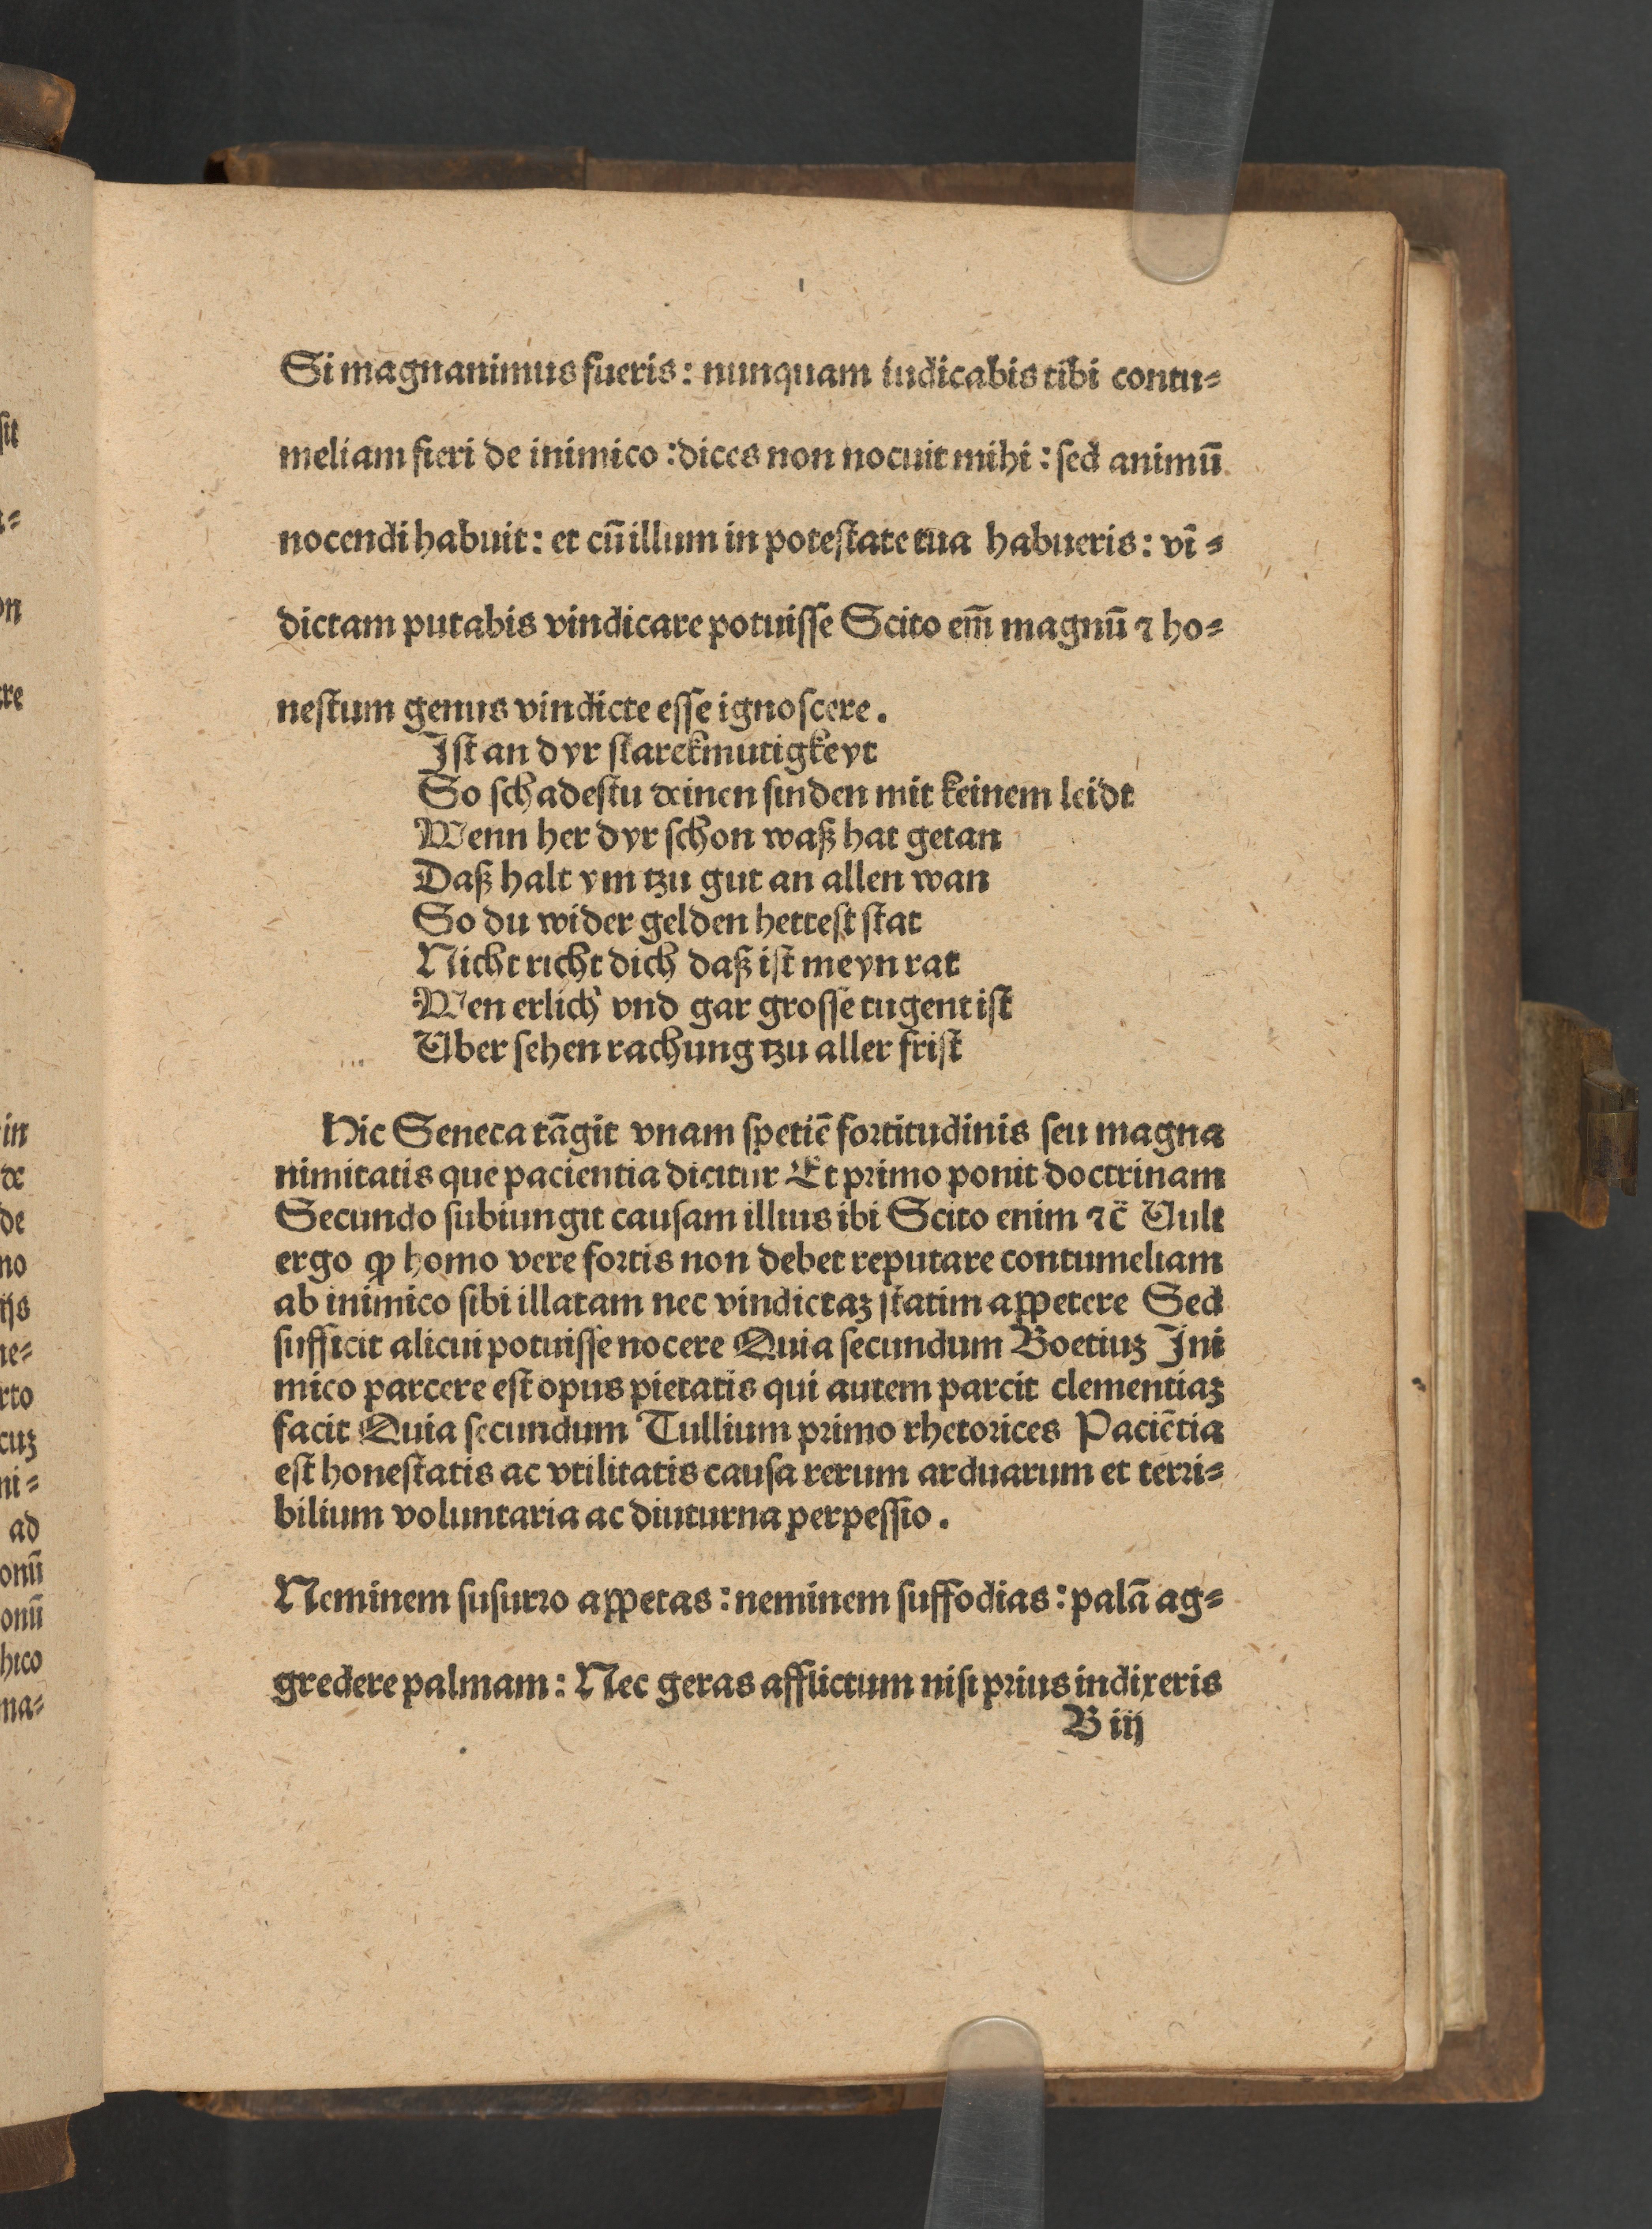 Si magnanimus fueris : nunquam iudicabis tibi contu⸗
meliam fieri de inimico : dices non nocuit mihi : sed animū
nocendi habuit : et cū illum in potestate tua habueris : vī⸗
dictam putabis vindicare potuisse Scito em̄ magnū ⁊ ho⸗
nestum genus vindicte esse ignoscere .
Ist an dyr starckmutigkeyt
So schadestu deinen finden mit keinem leidt
Wenn her dyr schon waß hat getan
Daß halt ym tzu gut an allen wan
So du wider gelden hettest stat
Nicht richt dich daß ist meyn rat
Wen erlich vnd gar grosse tugent ist
Uber sehen rachung tzu aller frist
Hic Seneca tāgit vnam spetiē fortitudinis seu magna
nimitatis que pacientia dicitur Et primo ponit doctrinam
Secundo subiungit causam illius ibi Scito enim ⁊c̄ Uult
ergo ꝙ homo vere fortis non debet reputare contumeliam
ab inimico sibi illatam nec vindictaꝫ statim appetere Sed
sufficit alicui potuisse nocere Quia secundum Boetiuꝫ Ini
mico parcere est opus pietatis qui autem parcit clementiaꝫ
facit Quia secundum Tullium primo rhetorices Paciētia
est honestatis ac vtilitatis causa rerum arduarum et terri⸗
bilium voluntaria ac diuturna perpessio .
Neminem susurro appetas : neminem suffodias : palā ag⸗
gredere palmam : Nec geras afflictum nisi prius indixeris
B iij